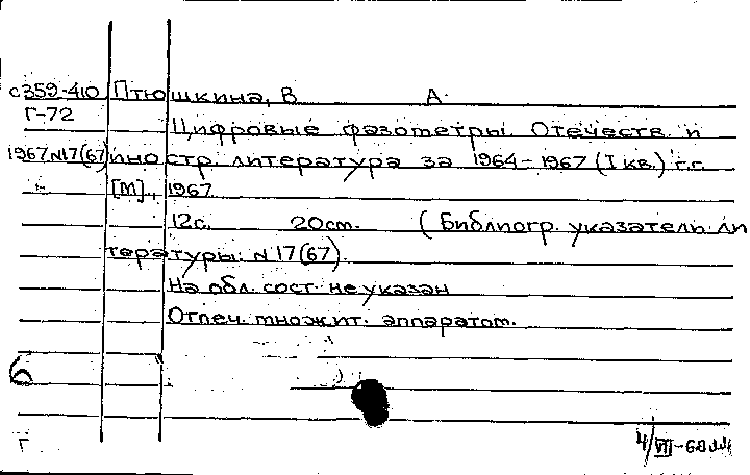 с359-410 Птюшкина, В А.
Г-72 Цифровые фазометры. Отечеств. и
1967 N17(67) иностр. литература за 1964-1967 (I кв.) г.г.
[М]., 1967.
12с. 20см. (Библиогр. указатель ли
тературы. N 17(67)
На обл. сост. не указан
Отпеч. множит. аппаратом.
6
Г